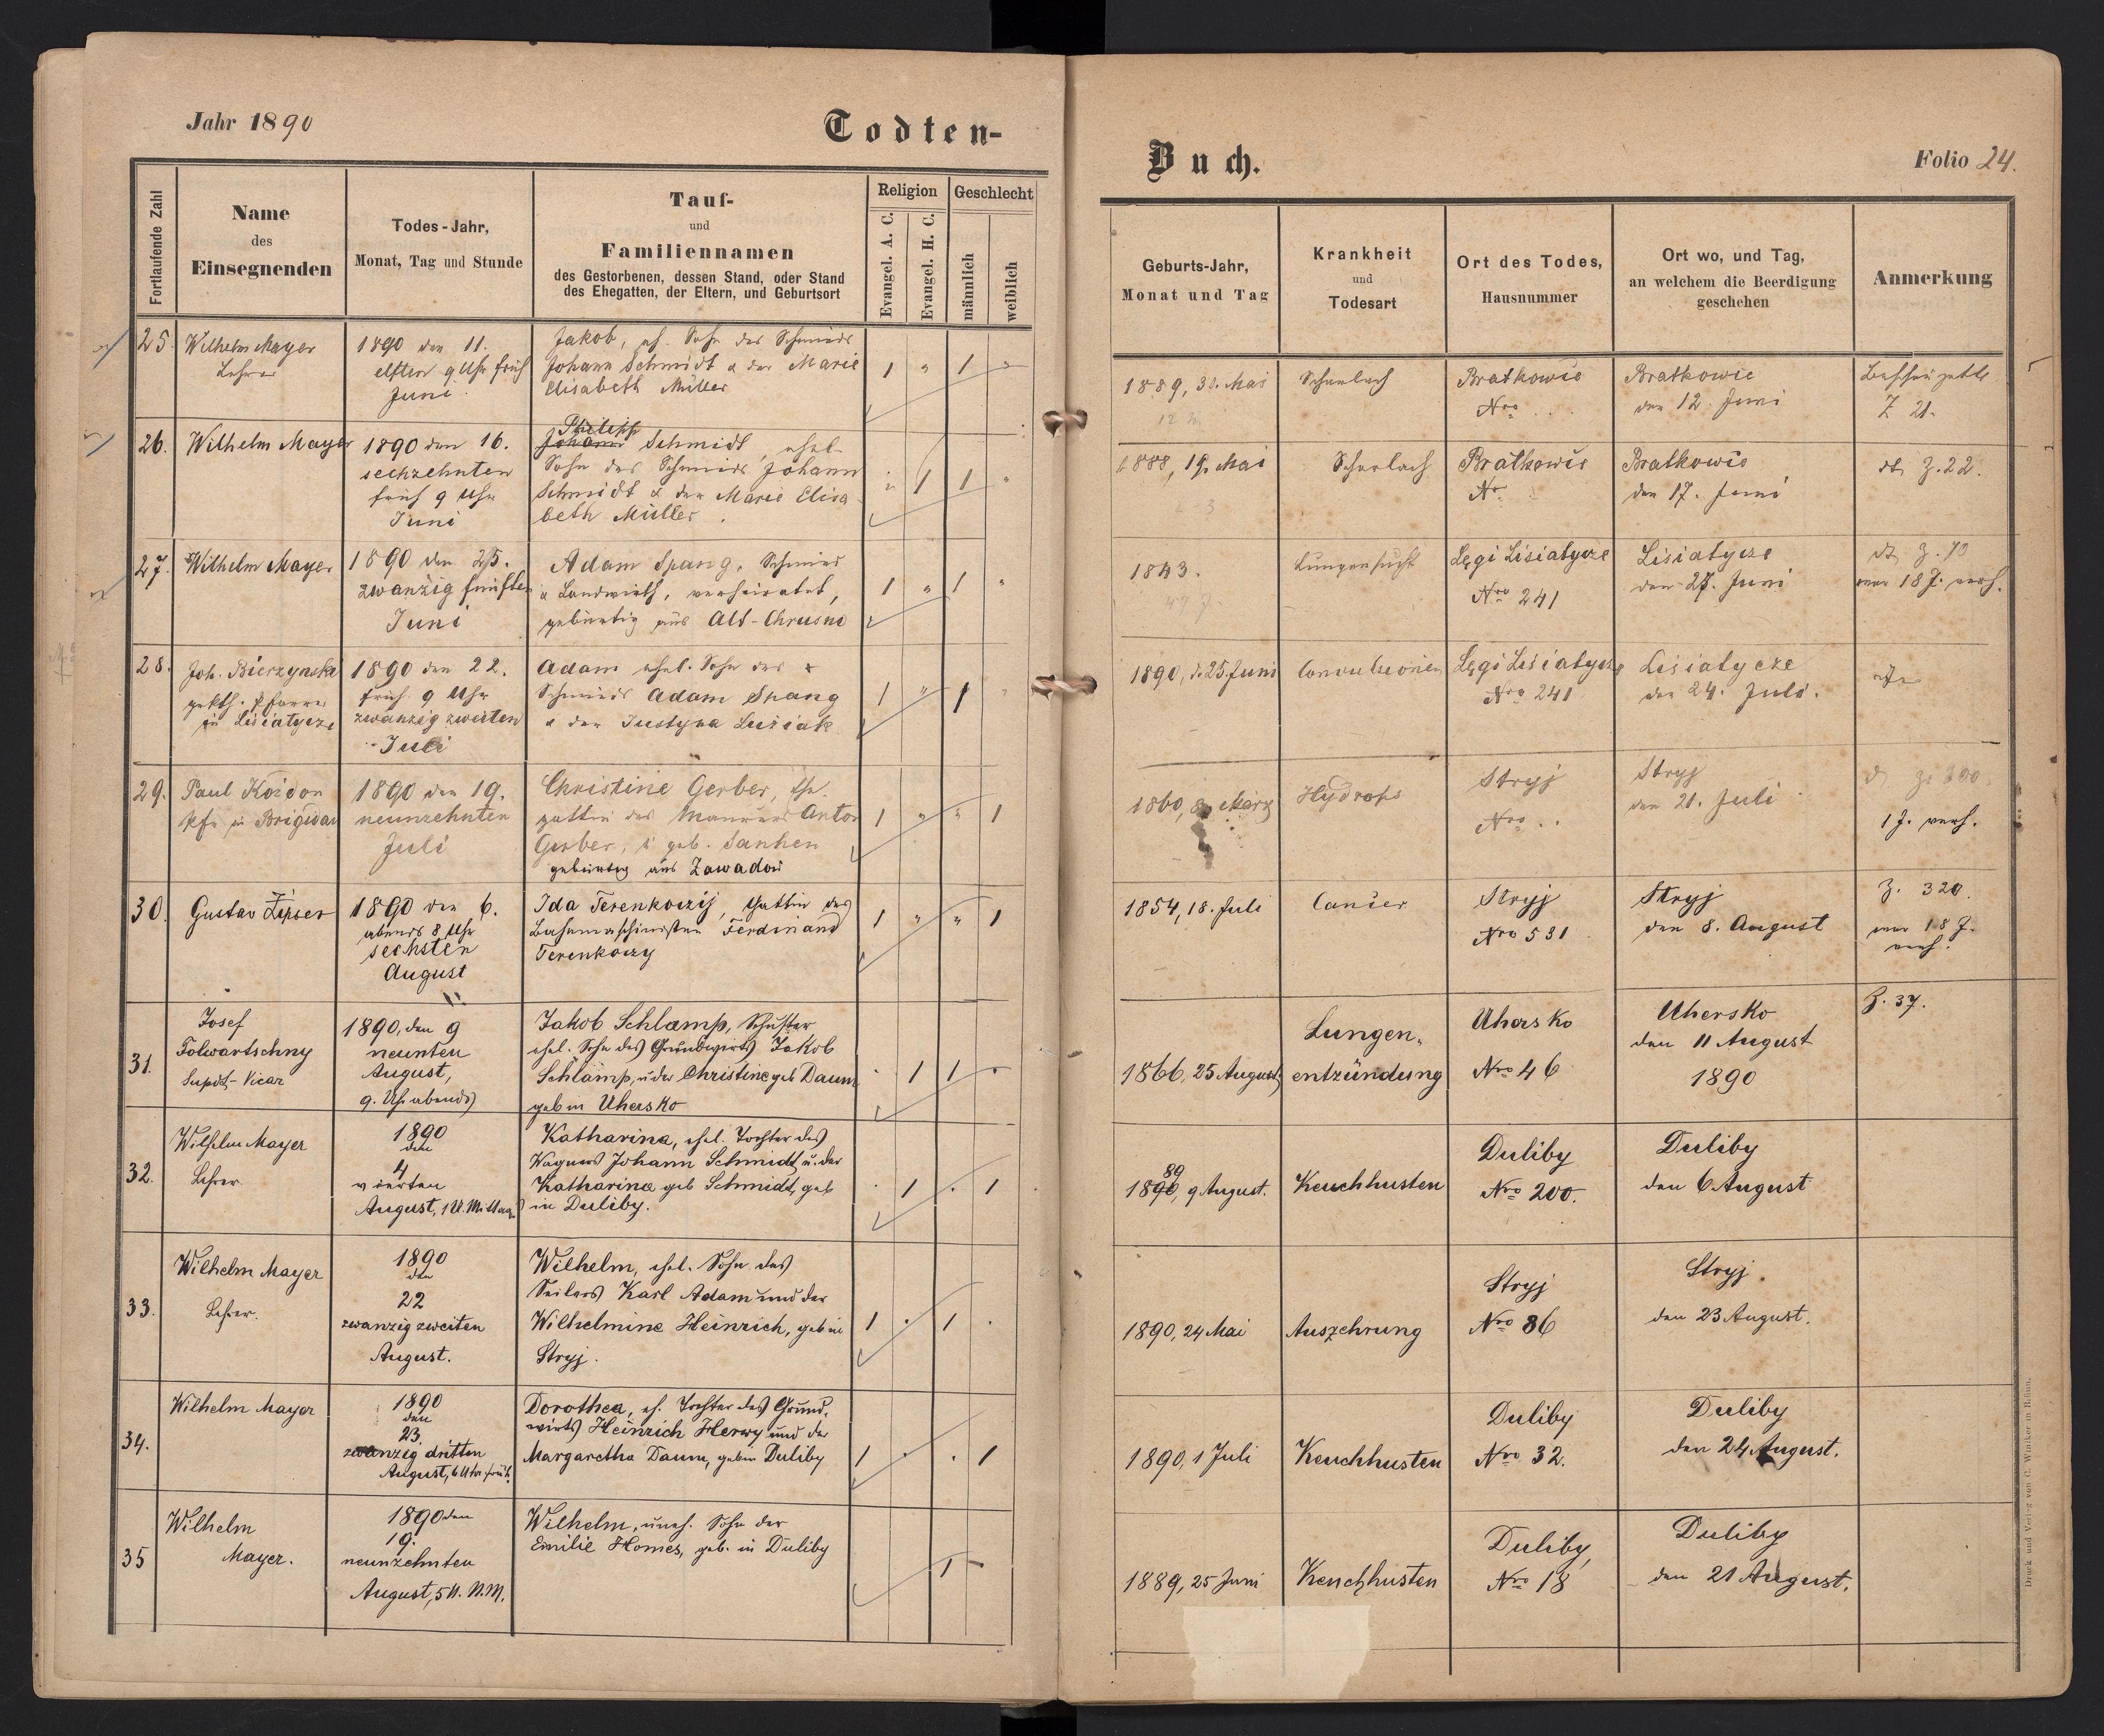 Jahr 1890
Todten-
Buch.
Folio 24.
Fortlaufende Zahl
Name
des
Einsegnenden
Todes-Jahr,
Monat, Tag und Stunde
Tauf-
und
Familiennamen
des Gestorbenen, dessen Stand, oder Stand
des Ehegatten, der Eltern, und Geburtsort
Religion
Evangel. A. C.
Evangel. H. C.
Geschlecht
männlich
weiblich
Geburts-Jahr,
Monat und Tag
Krankheit
und
Todesart
Ort des Todes,
Hausnummer
Ort wo, und Tag,
an welchem die Beerdigung
geschehen
Anmerkung
25.
Wilhelm Mayer
Lehrer
1890 den 11.
elften 9 Uhr früh
Juni
Jakob, eh. Sohn des Schmieds
Johann Schmidt & der Marie
Elisabeth Müller
1 " 1 "
1889, 30. Mai
Scharlach
Bratkowice
Nro
Bratkowic
den 12. Juni
Z 21.
26.
Wilhelm Mayer
1890 den 16.
sechzehnten
früh 9 Uhr
Juni
Philipp
Johann Schmidt, ehel.
Sohn des Schmieds Johann
Schmidt & der Marie Elisa
beth Müller.
" 1 1 "
1888, 19. Mai
Scharlach
Bratkowic
Nr
Bratkowic
den 17. Juni
Z. 22.
27.
Wilhelm Mayer
1890 den 25.
zwanzig fünften
Juni
Adam Spang, Schmied
& Landwirth, verheiratet,
gebürtig aus Alt-Chrusno
1 " 1 "
1843.
Lungensucht
Lęgi Lisiatycze
Nro 241
Lisiatycze
den 27. Juni
war 18 J. verh.
28.
Joh. Bierzynski
Pfarrer
in Lisiatycze
1890 den 22.
früh 9 Uhr
zwanzig zweiten
Juli
Adam ehel. Sohn des
Schmieds Adam Spang
& der Justyna Lusiak
1 " 1 "
1890, d. 25. Juni
Convulsionen
Lęgi Lisiatycze
Nro 241
Lisiatycze
den 24. Juli.
29.
Paul Koidon
Pfr in Brigidau
1890 den 19.
neunzehnten
Juli
Christine Gerber, Eh.
gattin des Maurers Anton
Gerber, geb. Sanhen
gebürtig aus Zawadow
1 " " 1
1860, März
Hydrops
Stryj
Nro ..
Stryj
den 21. Juli
1 J. verh.
30.
Gustav Zipser
1890 den 6.
abends 8 Uhr
sechsten
August
Ida Terenkoczij, Gattin des
Ferdinand
Terenkoczy
1 " " 1
1854, 18. Juli
Cancer
Stryj
Nro 531
Stryj
den 8. August
Z. 320.
war 18 J.
verh.
31.
Josef
Folwartschny
Supdt-Vicar
1890, den 9
neunten
August,
9. Uhr abends
Jakob Schlamp, Schuster
ehel. Sohn des Grundwirts Jakob
Schlamp, u. der Christine geb Daum
geb in Uhersko
. 1 1 .
1866, 25 August
Lungen-
entzündung
Uhersko
Nro 46
Uhersko
den 11 August
1890
Z. 37.
32.
Wilhelm Mayer
Lehrer
1890
den
4
vierten
August, 1 U. Mittag
Katharina, ehel. Tochter des
Wagners Johann Schmidt u. der
Katharina geb Schmidt, geb
in Duliby.
. 1 . 1
89
1890, 9 August.
Keuchhusten
Duliby
Nro 200.
Duliby
den 6 August
33.
Wilhelm Mayer
Lehrer.
1890
den
22
zwanzig zweiten
August.
Wilhelm, ehel. Sohn des
Seilers Karl Adam und der
Wilhelmine Heinrich, geb in
Stryj.
1 . 1 .
1890, 24 Mai
Auszehrung
Stryj
Nro 86
Stryj.
den 23 August.
34.
Wilhelm Mayer
1890
den
23.
zwanzig dritten
August, 6 Uhr früh.
Dorothea, eh. Tochter des Grund-
wirts Heinrich Herwy und der
Margaretha Daum, geb in Duliby
1 . . 1
1890, 1 Juli
Keuchhusten
Duliby
Nro 32.
Duliby
den 24 August.
35
Wilhelm
Mayer.
1890 den
19.
neunzehnten
August, 5 U. N.M.
Wilhelm, uneh. Sohn der
Emilie Homes, geb. in Duliby
1 -
1889, 25 Juni
Keuchhusten
Duliby,
Nro 18
Duliby
den 21 August.
Druck und Verlag von C. Winiker in Brünn.